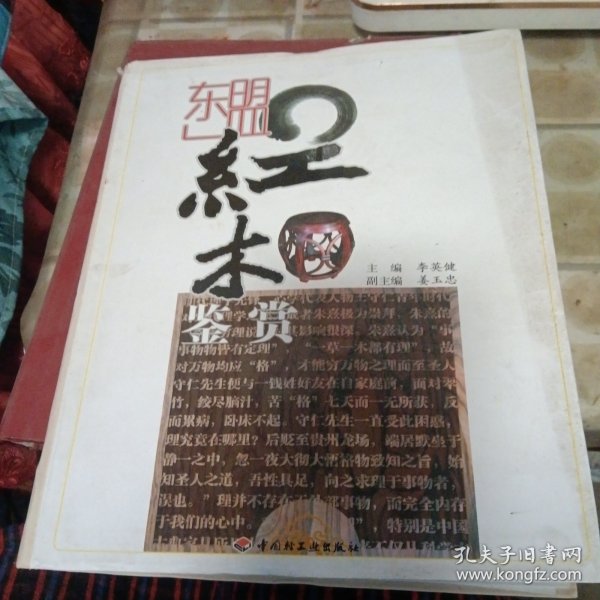 东盟
红木
鉴赏
主编 李英健
副主编 姜玉忠
者朱熹极为崇拜。朱熹的
影响很深。朱熹认为“事
事物物皆有定理”“一草一木都有理”，故
对万物均应“格”，才能穷万物之理而至圣人
守仁先生便与一钱姓好友在自家庭前，面对翠
竹，绞尽脑汁，苦“格”七天而一无所获，反
而累病，卧床不起。守仁先生一直受此困惑，
理究竟在哪里？后贬至贵州龙场，端居默坐于
静一之中，忽一夜大彻大悟格物致知之旨，始
知圣人之道，吾性具足，向之求理于事物者，
误也。”理并不存在于外部事物，而完全内存
于我们的心中。 特别是中国
中国轻工业出版社
孔夫子旧书网
www.kongfz.com